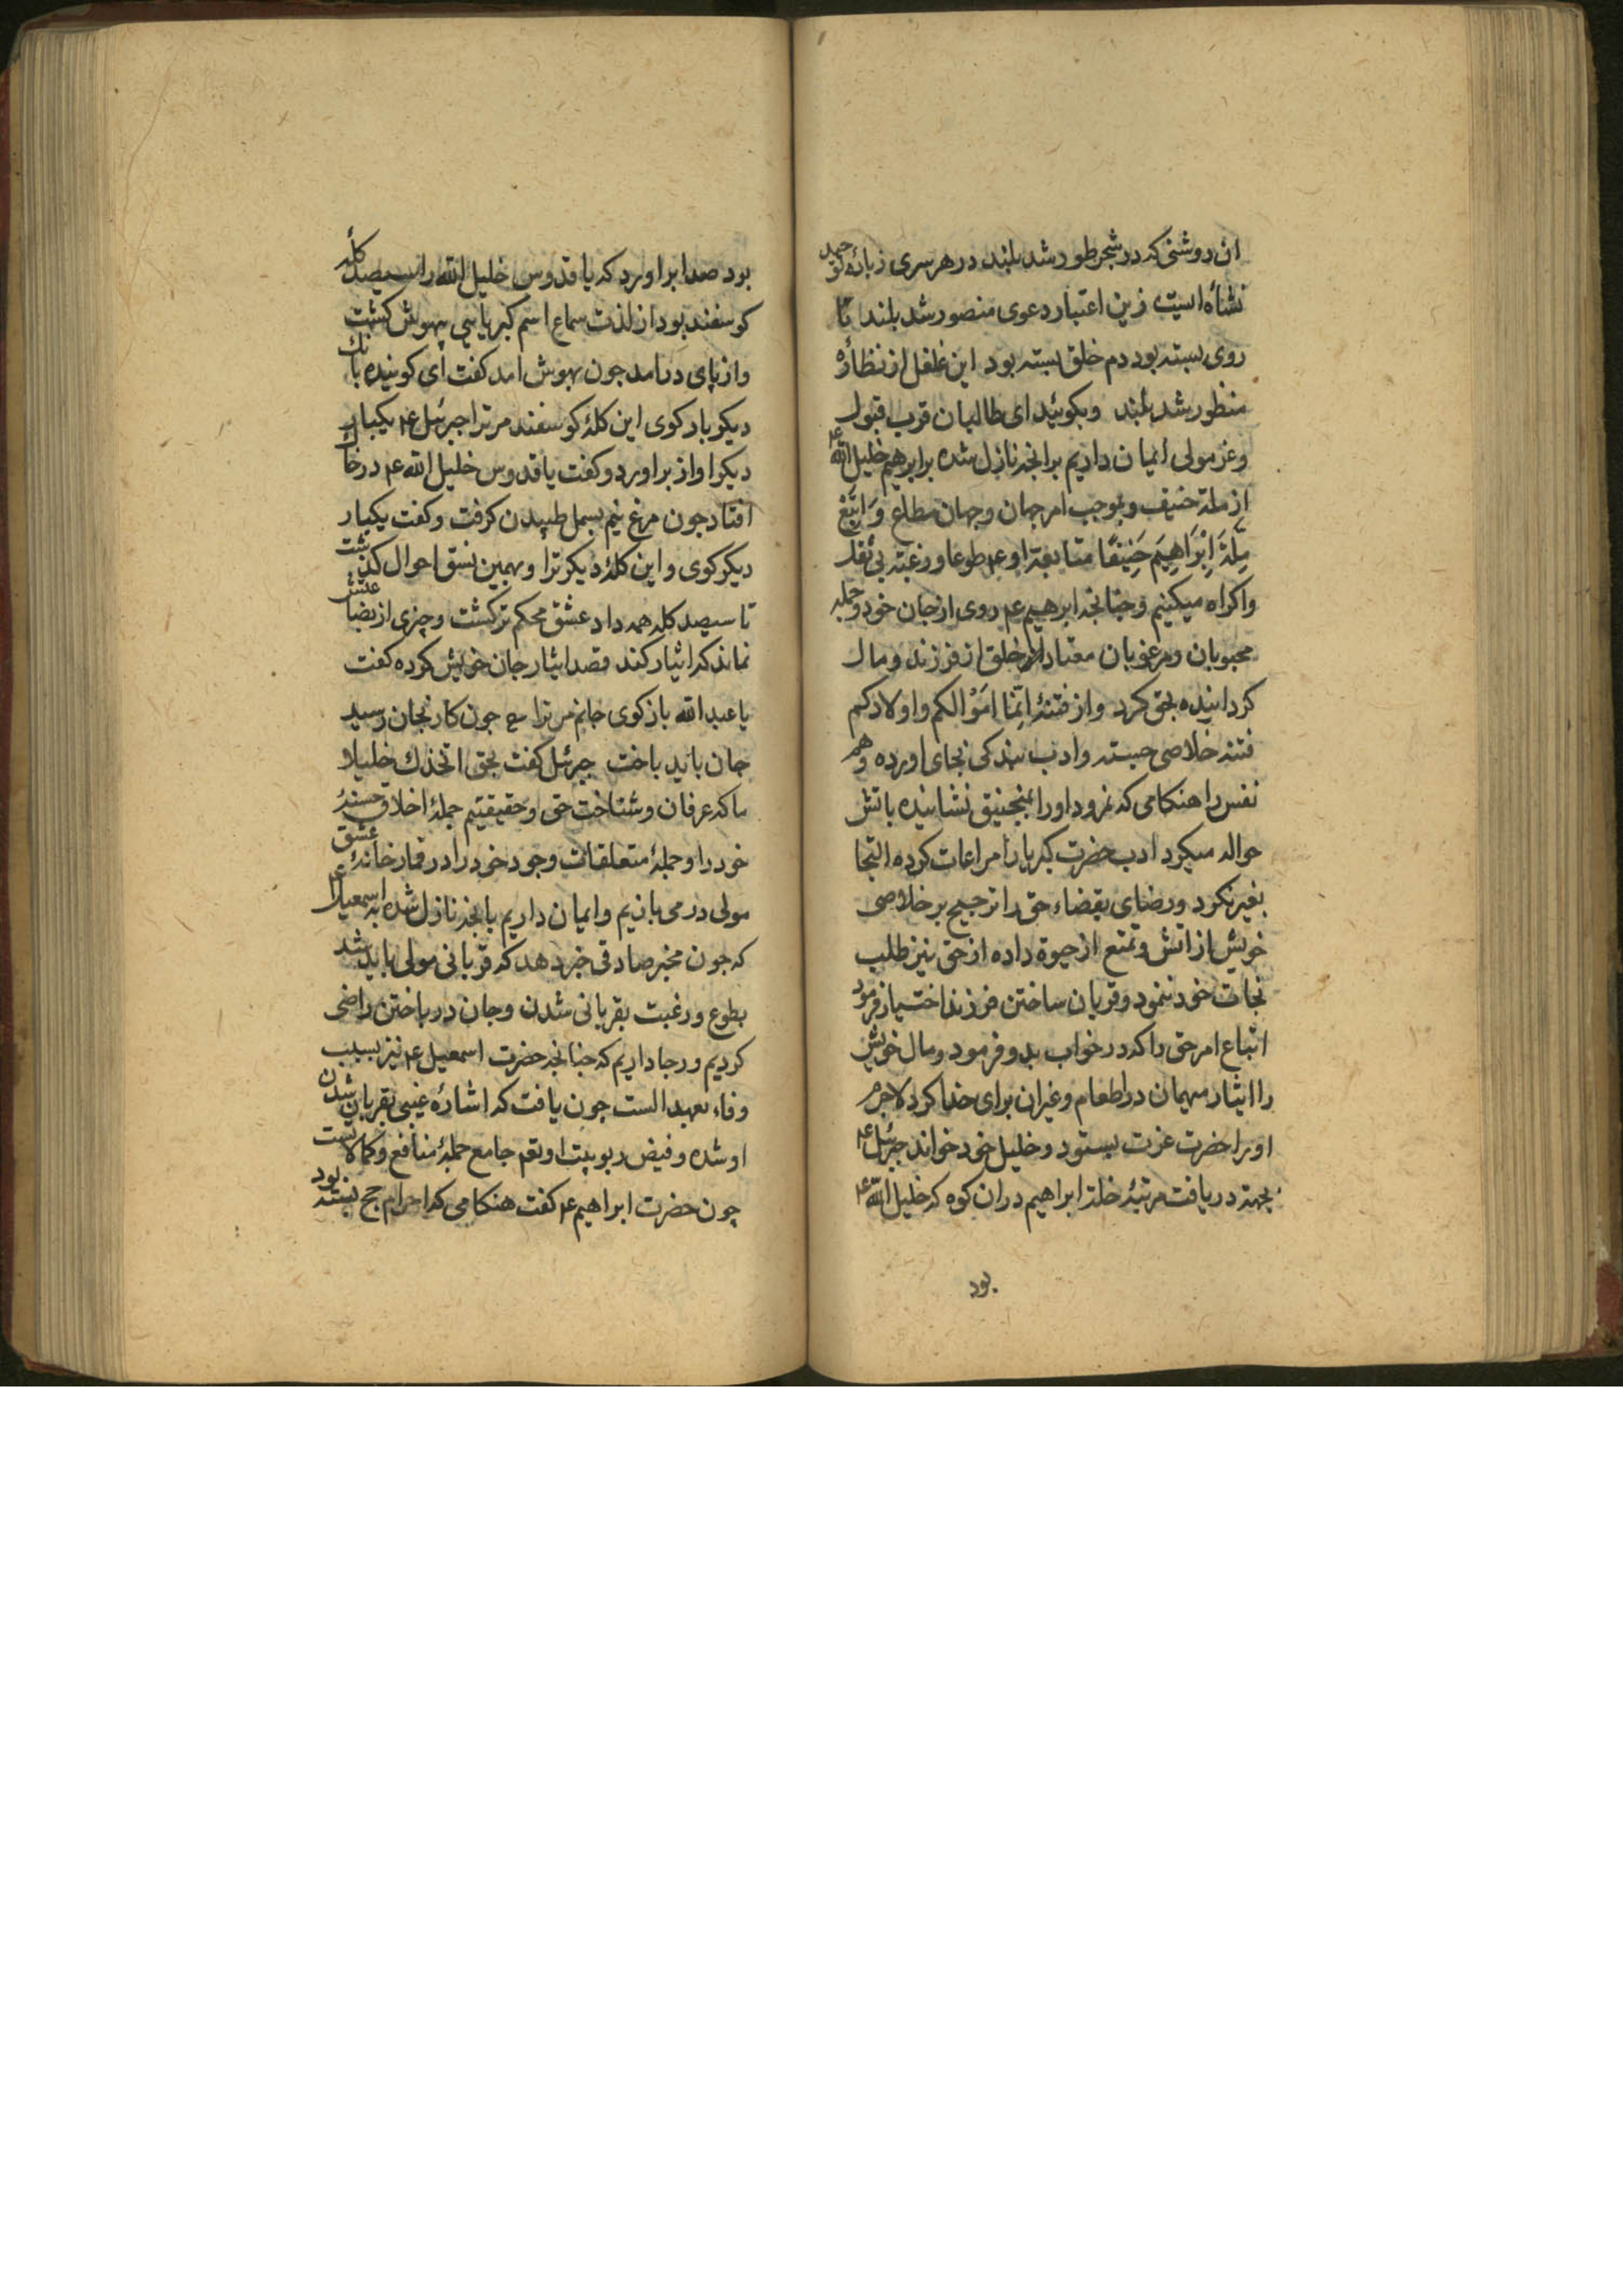 ان روشنی که در شجر طور شد بلند در هر سری زبانه توحید
نشاه است زین اعتبار دعوی منصور شد بلند تا
روی بسته بود دم خلق بسته بود این غلغل از نظاره
منظور شد بلند وبکوئید ای طالبان قرب قبول
وعز مولی ایمان داریم برانچه نازل شده بر ابرهیم خلیل الله ع
از ملة حنیف وبموجب امر جهان وجهان مطلع وَاتَّبَعَ
مِلَّةَ اِبْرَاهِیمَ حَنِیفًا متابعة او ع م طوعا ورغبة بی
واکراه میکنیم وچنانچه ابرهیم ع م روی از جان خود وجمله
محبوبان ومرغوبان معتاد خلق از فرزند ومال
کردانیده بحق کرد واز فتنهٔ اِنَّمَا اَمْوَالکم واولادکم
فتنه خلاصی جسته وادب بندکی بجای اورده وهم
نفس را هنکامی که نمرود اورا بمنجنیق نشانیده باتش
حواله میکرد ادب حضرت کبریارا مراعات کرده التجا
بغیر نکرد ورضای بقضاء حق را ترجیح بر خلاصی
خویش از اتش وتمتع از حیوة داده از حق نیز طلب
نجات خود ننمود وقربان ساختن فرزند اختیار فرمود
اتباع امر حق را که در خواب بدو فرمود ومال خویش
را ایثار مهمان در اطعام وغیران برای خدا کرد لاجرم
اورا حضرت عزت بستود وخلیل خود خواند جبرئیل ع م
بجهة دریافت مرتبهٔ خلة ابراهیم دران کوه که خلیل الله ع م
بود
بود صدا براورد که یا قدوس خلیل الله را سیصد کله
کوسفند بود از لذت سماع اسم کبریایی بیهوش کشت
واز پای درامد چون بهوش امد کفت ای کوینده پاک
دیکر بار کوی این کلهٔ کوسفند مر ترا جبرئیل ع م یکبار
دیکر اواز براورد وکفت یا قدوس خلیل الله ع م در خاک
افتاد چون مرغ نیم بسمل طپیدن کرفت وکفت یکبار
دیکر کوی واین کلهٔ دیکر ترا وبهمین نسق احوال کذشت
تا سیصد کله همه داد عشق محکم تر کشت وچیزی از بضاعتش
نماند که ایثار کند قصد ایثار جان خویش کرده کفت
یا عبد الله باز کوی جانم مر ترا ع چون کار بجان رسید
جان باید باخت جبرئیل کفت بحق اتخذک خلیلا
ما که عرفان وشناخت حق وحقیقتیم جملهٔ اخلاق حسنهٔ
خود را وجملهٔ متعلقات وجود خود را در قمار خانهٔ عشق
مولی در می بازیم وایمان داریم بانچه نازل شده به اسمعیل ع م
که چون مخبر صادقی خبر دهد که قربانی مولی باید شد
بطوع ورغبت بقربانی شدن وجان در باختن راضی
کردیم ورجا داریم که چنانچه حضرت اسمعیل ع م نیز بسبب
وفاء بعهد الست چون یافت که اشاره غیبی بقربان شدن
او شده وفیض ربوبیت او تعم جامع جملهٔ منافع وکمالاتست
چون حضرت ابراهیم ع م کفت هنکامی که احرام حج بسته بود